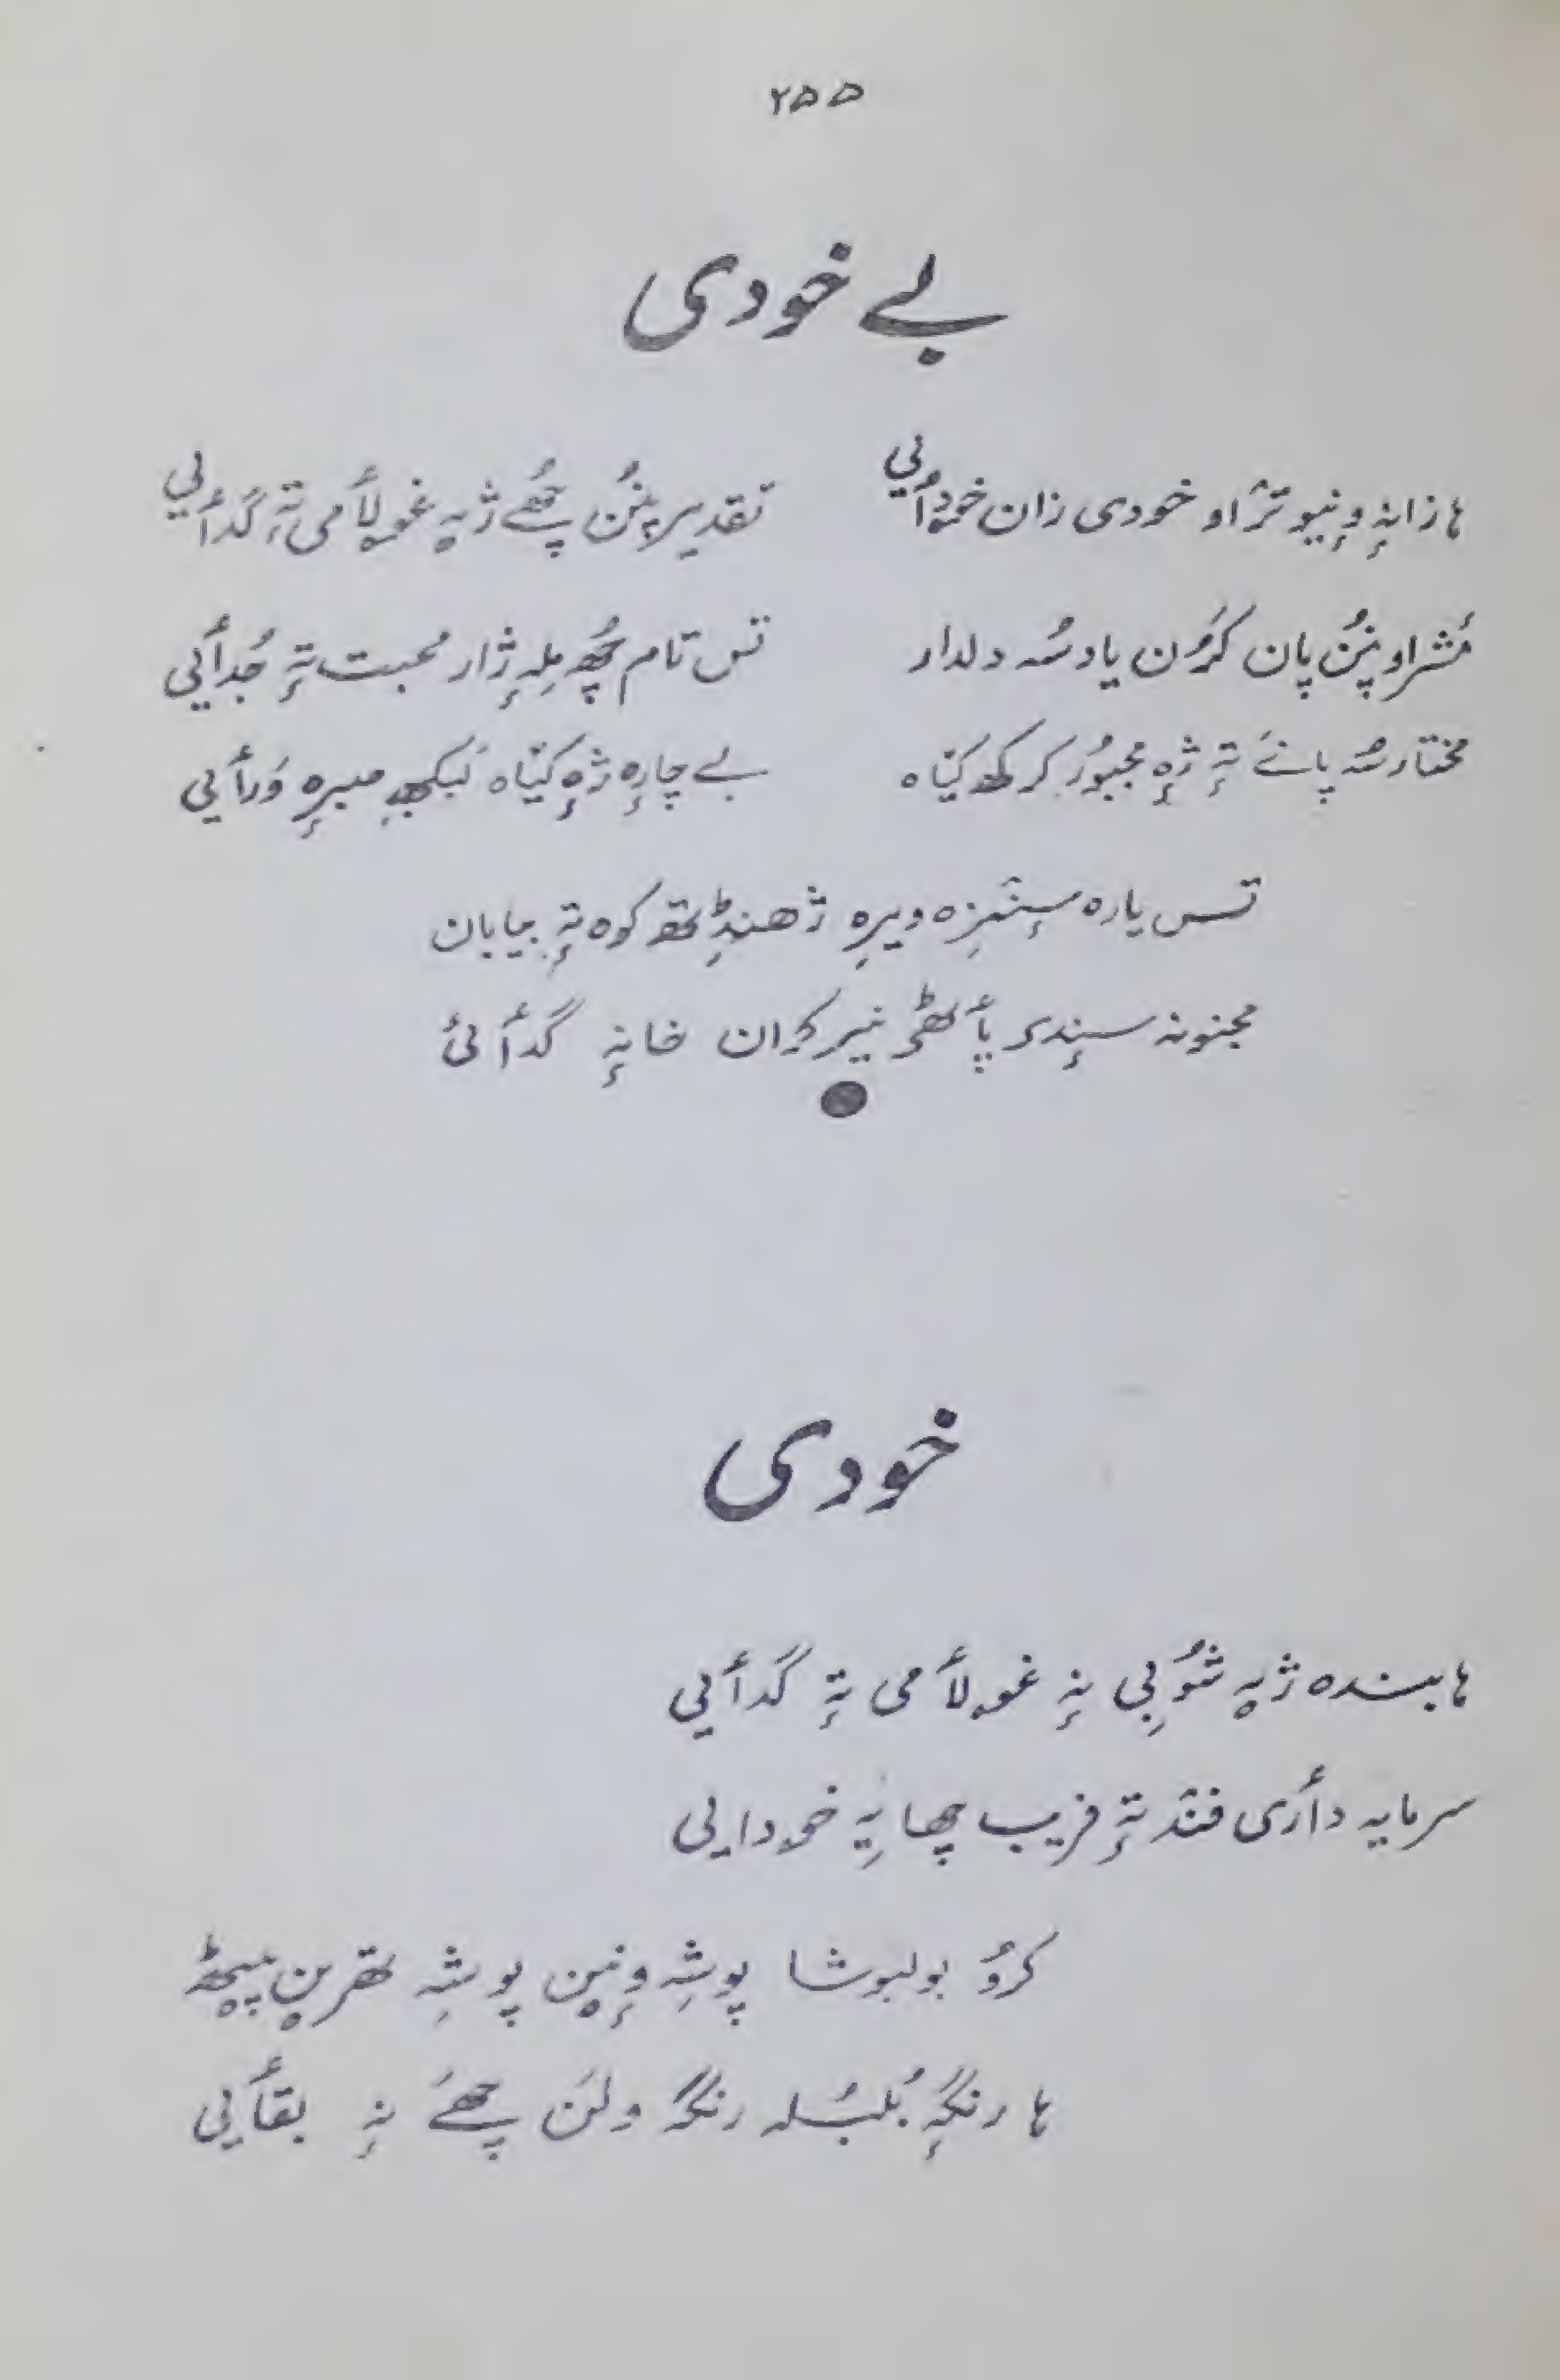 ۲۵۵
بے خودی
ہا زانہٕ وٕنیو ترٛاو خودی زان خودأیی تقدیر پنُن چھُے ژٕہ غولأمی تہٕ گدأیی
مُشراو پنُن پان کرُن یاد سُہ دلدار تس تام چھُ مِلہٕ ژار محبت تہٕ جُدأیی
مختار سُہ پانَے تہٕ ژٕہ مجبوُر کر کھ کیٛاہ بے چارٕہ ژٕہ کیٛاہ نَیکھہِ میرٕہ وَرأیی
تس یارہ سٕنٛزِہ ویرِہ ژھنڈِتھ کوہ تہٕ بیابان
مجنونہ سٕندۍ پأٹھۍ نیر کران خانہٕ گدأئی
خودی
ہا بندہ ژٕہ شوٗبی نہٕ غولأمی تہٕ گدأیی
سرمایہ دأری فنٛد تہٕ فریب چھا یہِ خودایی
کروُ بولبوشا پوشہِ وٕنین پوشہِ تھرین پیٹھ
ہا رنگہٕ بُلبُلہ رنگہ ولَن چھَے نہٕ بقأیی